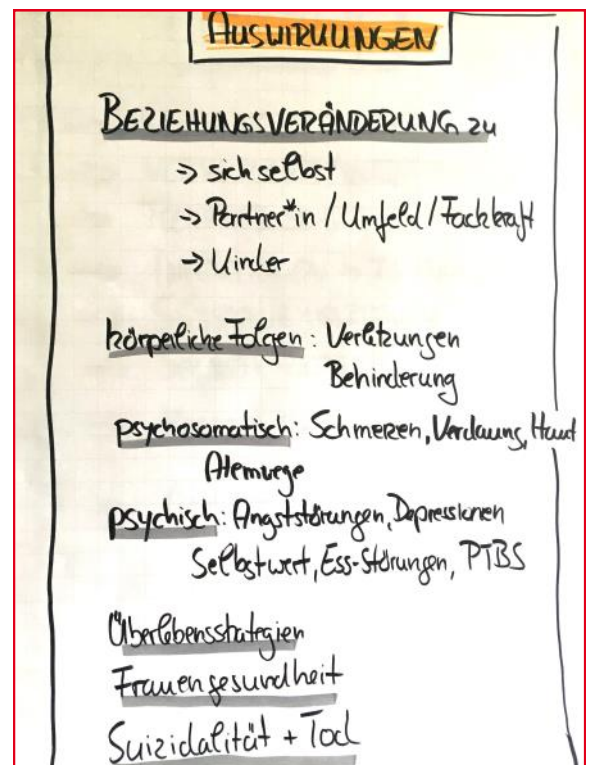 AUSWIRKUNGEN
BEZIEHUNGSVERÄNDERUNG zu
→ sich selbst
→ Partner*in / Umfeld / Fachkraft
→ Kinder
körperliche Folgen: Verletzungen
Behinderung
psychosomatisch: Schmerzen, Verdauung, Haut
Atemwege
psychisch: Angststörungen, Depressionen
Selbstwert, Ess-Störungen, PTBS
Überlebensstrategien
Frauengesundheit
Suizidalität + Tod